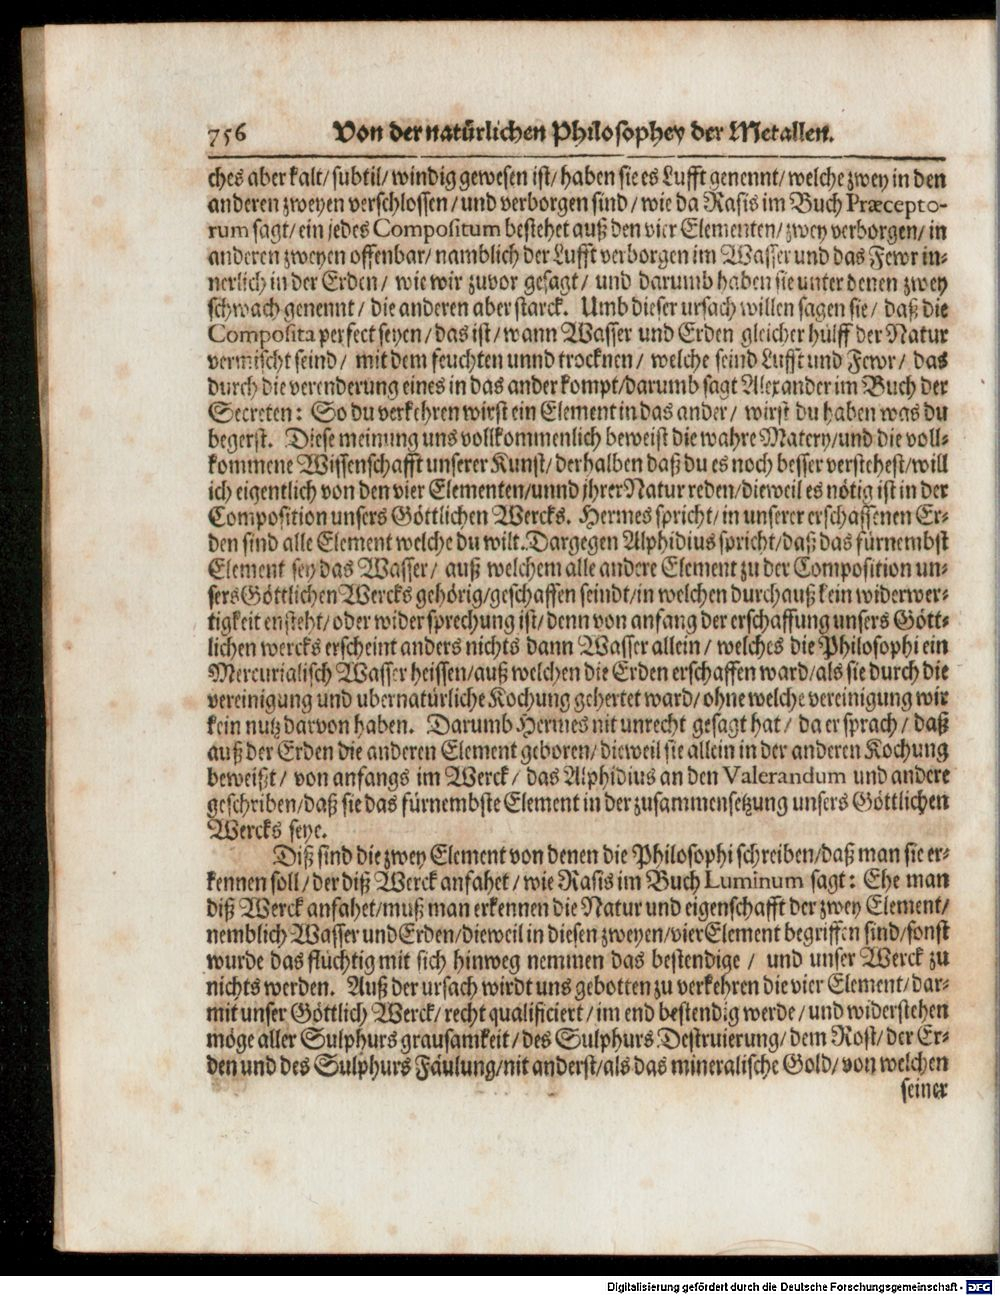 756 Von der natürlichen Philosophey der Metallen.
ches aber kalt/ subtil/ windig gewesen ist/ haben sie es Lufft genennt/ welche zwey in den
anderen zweyen verschlossen/ und verborgen sind/ wie da Rasis im Buch Præcepto-
rum sagt/ ein jedes Compositum bestehet auß den vier Elementen/ zwey verborgen/ in
anderen zweyen offenbar/ namblich der Lufft verborgen im Wasser und das Fewr in-
nerlich in der Erden/ wie wir zuvor gesagt/ und darumb haben sie unter denen zwey
schwach genennt/ die anderen aber starck. Umb dieser ursach willen sagen sie/ daß die
Composita perfect seyen/ das ist/ wann Wasser und Erden gleicher hülff der Natur
vermischt seind/ mit dem feuchten unnd trocknen/ welche seind Lufft und Fewr/ das
durch die verenderung eines in das ander kompt/ darumb sagt Alexander im Buch der
Secreten: So du verkehren wirst ein Element in das ander/ wirst du haben was du
begerst. Diese meinung uns vollkommenlich beweist die wahre Matery/ und die voll-
kommene Wissenschafft unserer Kunst/ derhalben daß du es noch besser verstehest/ will
ich eigentlich von den vier Elementen/ unnd jhrer Natur reden/ dieweil es nötig ist in der
Composition unsers Göttlichen Wercks. Hermes spricht/ in unserer erschaffenen Er-
den sind alle Element welche du wilt. Dargegen Alphidius spricht/ daß das fürnembst
Element sey das Wasser/ auß welchem alle andere Element zu der Composition un-
sers Göttlichen Wercks gehörig/ geschaffen seindt/ in welchen durchauß kein widerwer-
tigkeit ensteht/ oder wider sprechung ist/ denn von anfang der erschaffung unsers Gött-
lichen wercks erscheint anders nichts dann Wasser allein/ welches die Philosophi ein
Mercurialisch Wasser heissen/ auß welchen die Erden erschaffen ward/ als sie durch die
vereinigung und ubernatürliche Kochung gehertet ward/ ohne welche vereinigung wir
kein nutz darvon haben. Darumb Hermes nit unrecht gesagt hat/ da er sprach/ daß
auß der Erden die anderen Element geboren/ dieweil sie allein in der anderen Kochung
beweißt/ von anfangs im Werck/ das Alphidius an den Valerandum und andere
geschriben/ daß sie das fürnembste Element in der zusammensetzung unsers Göttlichen
Wercks seye.
Diß sind die zwey Element von denen die Philosophi schreiben/ daß man sie er-
kennen soll/ der diß Werck anfahet/ wie Rasis im Buch Luminum sagt: Ehe man
diß Werck anfahet/ muß man erkennen die Natur und eigenschafft der zwey Element/
nemblich Wasser und Erden/ dieweil in diesen zweyen/ vier Element begriffen sind/ sonst
wurde das flüchtig mit sich hinweg nemmen das bestendige/ und unser Werck zu
nichts werden. Auß der ursach wirdt uns gebotten zu verkehren die vier Element/ dar-
mit unser Göttlich Werck/ recht qualificiert/ im end bestendig werde/ und widerstehen
möge aller Sulphurs grausamkeit/ des Sulphurs Destruierung/ dem Rost/ der Er-
den und des Sulphurs Fäulung/ nit anderst/ als das mineralische Gold/ von welchen
seiner
Digitalisierung gefördert durch die Deutsche Forschungsgemeinschaft - DFG